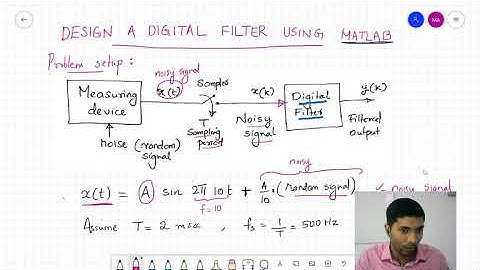 DESIGN A DIGITAL FILTER USING MATLAB
MA
Problem setup :
noisy signal
x(t)
Sampler
x(k)
y(k)
Measuring device
T
Sampling period
Noisy signal
Digital Filter
Filtered output
noise (random) signal
noisy
x(t) = A sin 2π 10 t + A/10 · (random signal) noisy signal
f=10
Assume T = 2 msec , fs = 1/T = 500 Hz